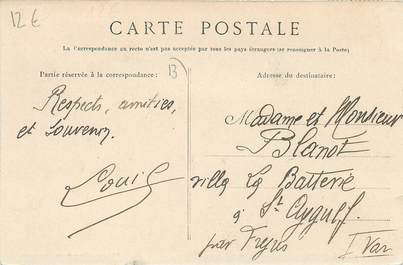 12€
CARTE POSTALE
La Correspondance au recto n'est pas acceptée par tous les pays étrangers (se renseigner à la Poste)
Partie réservée à la correspondance:
13
Adresse du destinataire:
Respects, amitiés,
et Souvenirs.
Louis
Madame et Monsieur
Blanot
villa La Batterie
à St Aygulf
par Frejus
Var